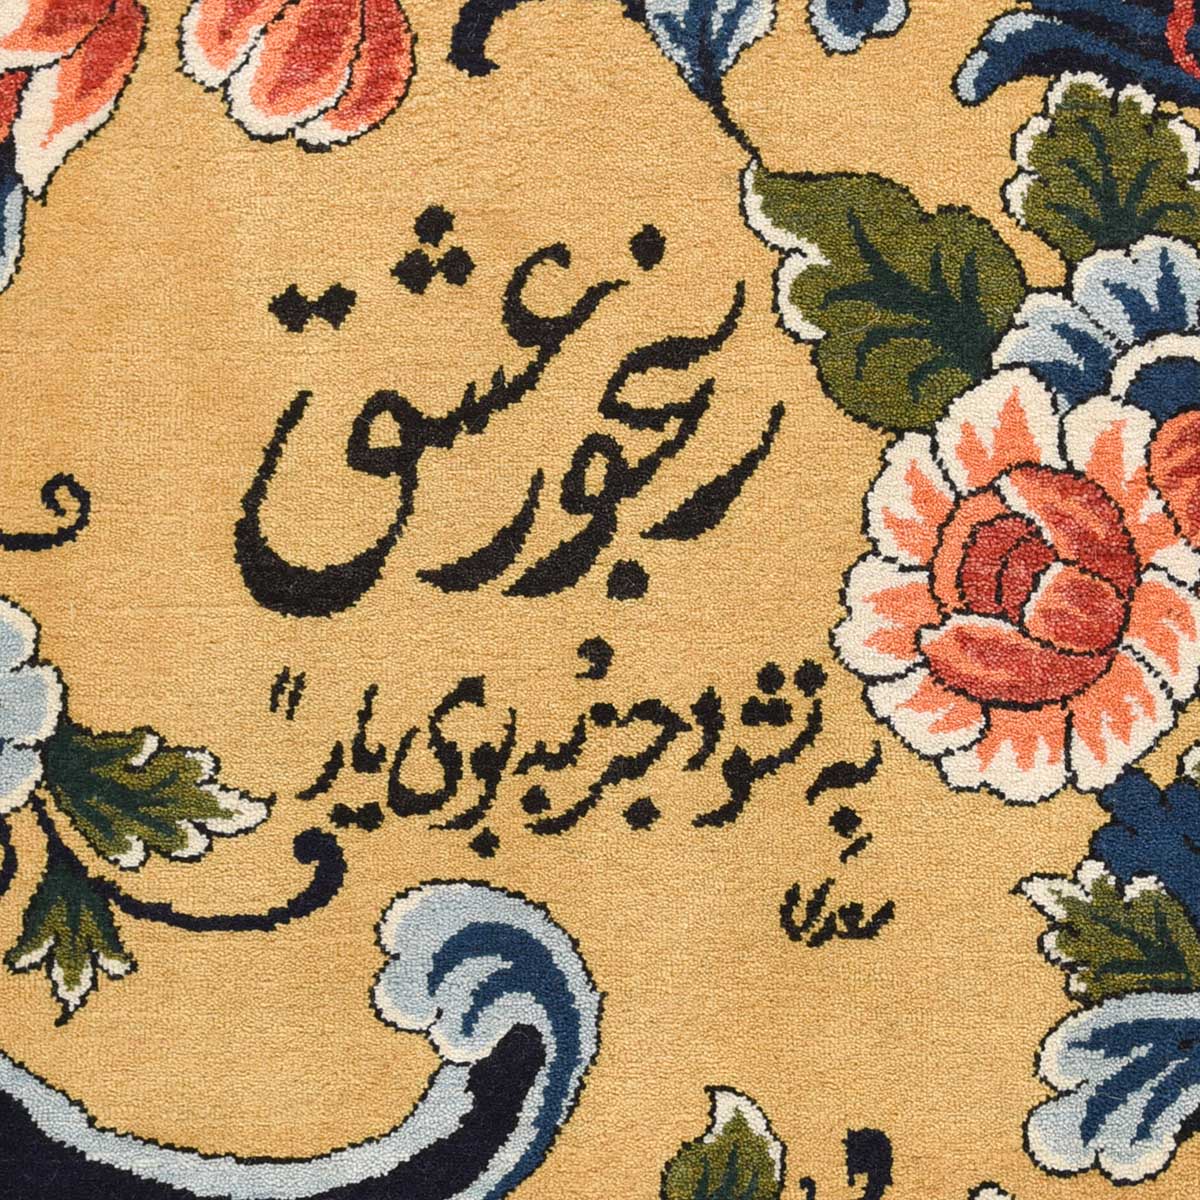 رنجور عشق
به نشود جز به بوی یار "
سعدی